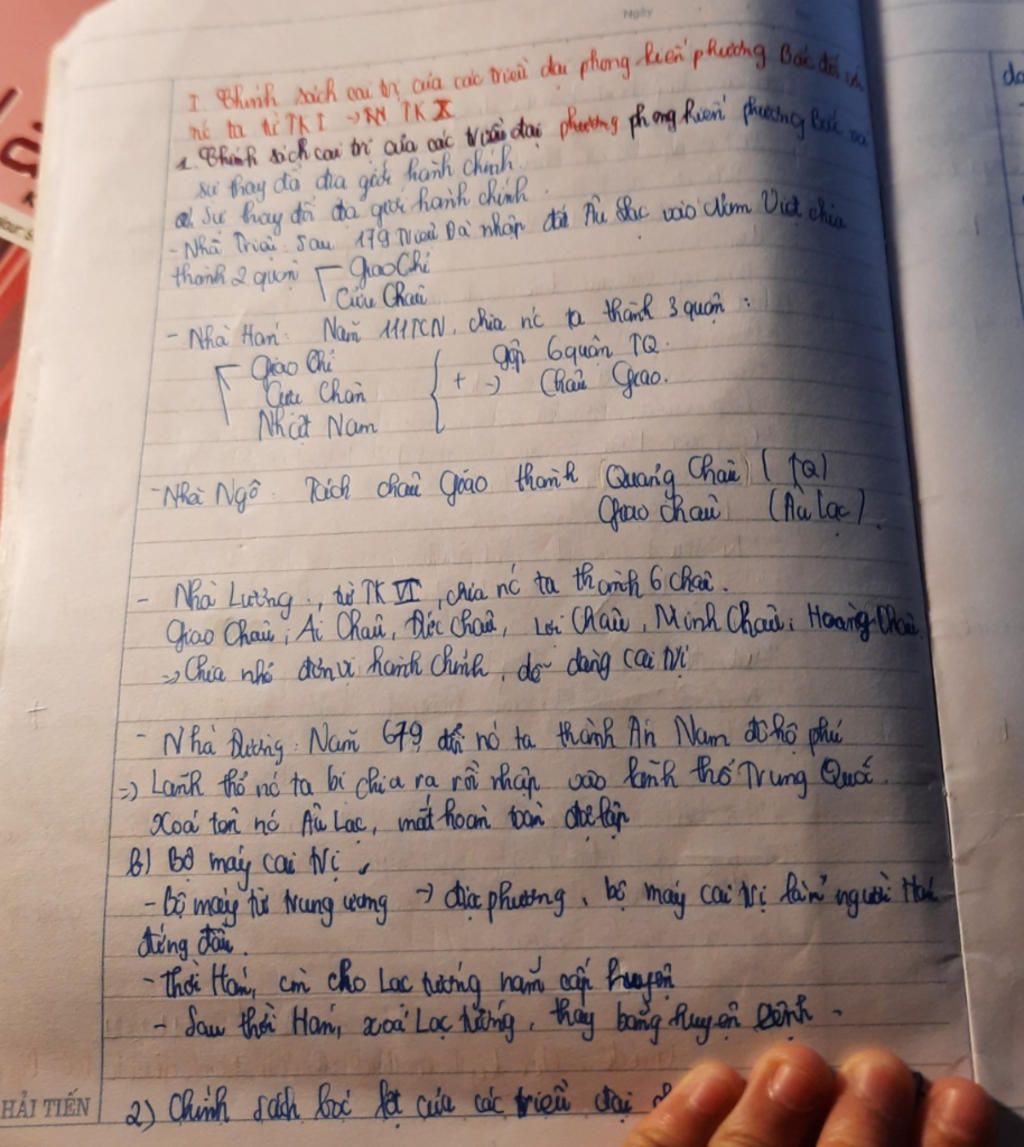 Ngày
I. Chính sách cai trị của các triều đại phong kiến phương Bắc đối với
nc ta từ TK I → TK X
1. Chính sách cai trị của các triều đại phương phong kiến phương Bắc và
sự thay đổi địa giới hành chính.
a) Sự thay đổi địa giới hành chính.
- Nhà Triệu: Sau 179 Triệu Đà nhập đất Âu Lạc vào Nam Việt chia
thành 2 quận Giao Chỉ
Cửu Chân
- Nhà Hán: Năm 111TCN, chia nc ta thành 3 quận:
Giao Chỉ
Cửu Chân
Nhật Nam
+ gộp 6 quận TQ.
→ Châu Giao.
- Nhà Ngô: Tách châu Giao thành Quảng Châu (TQ)
Giao Châu (Âu Lạc).
- Nhà Lương, từ TK VI, chia nc ta thành 6 châu.
Giao Châu; Ái Châu, Đức Châu, Lợi Châu, Minh Châu; Hoàng Châu.
→ Chia nhỏ đơn vị hành chính, dễ dàng cai trị
- Nhà Đường: Năm 679 đổi nc ta thành An Nam đô hộ phủ
=> Lãnh thổ nc ta bị chia ra rồi nhập vào lãnh thổ Trung Quốc.
Xoá tên nc Âu Lạc, mất hoàn toàn độc lập
b) Bộ máy cai trị.
- Bộ máy từ trung ương → địa phương, bộ máy cai trị là người Hán
đứng đầu.
- Thời Hán, còn cho Lạc tướng nắm cấp huyện
- Sau thời Hán, xoá Lạc tướng, thay bằng huyện lệnh
2) Chính sách bóc lột của các triều đại
HẢI TIẾN